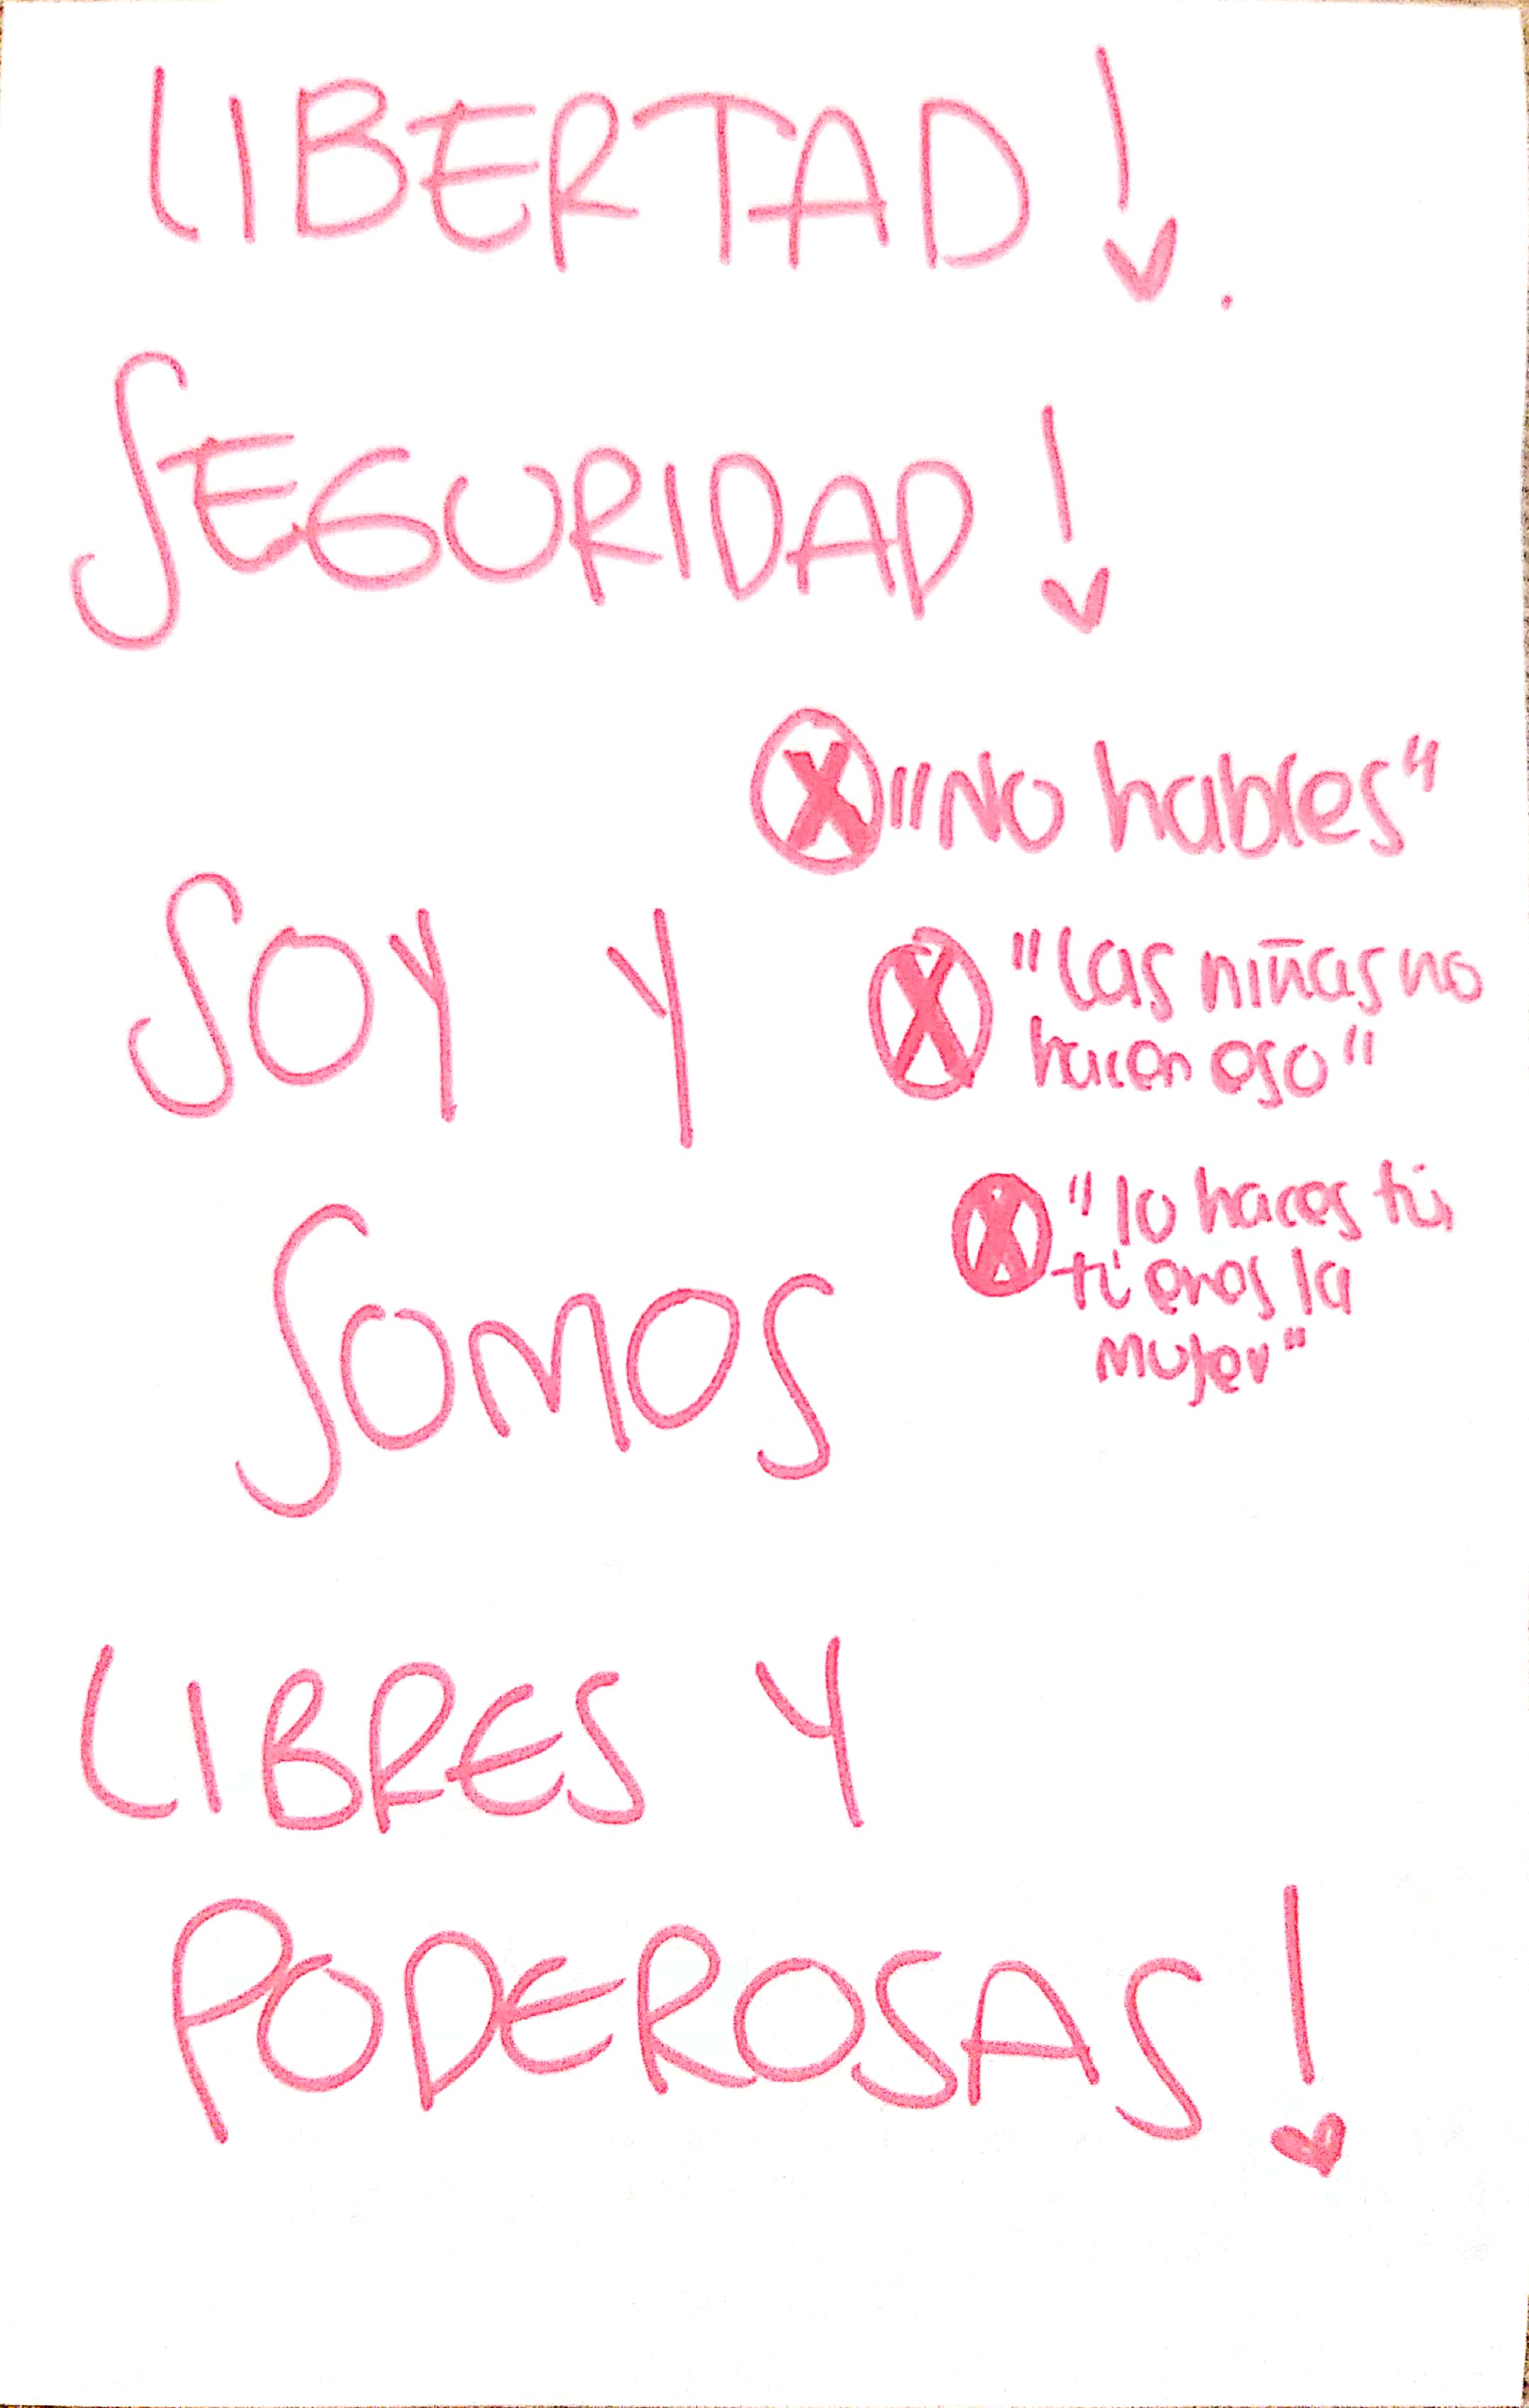 LIBERTAD!
SEGURIDAD!
X "NO hables"
SOY Y
X "las niñas no
hacen eso"
SOMOS
X "lo haces tú,
tú eres la
mujer"
LIBRES Y
PODEROSAS!